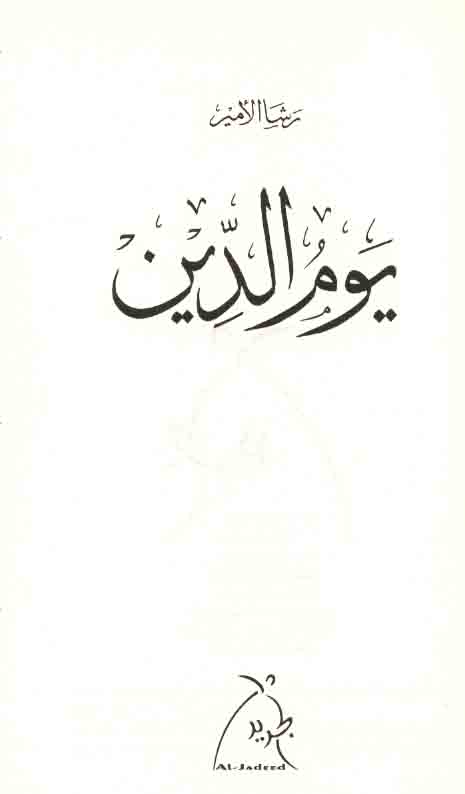 رَشَا الأمير
يَومُ الدِّين
الجديد
AL-Jadeed